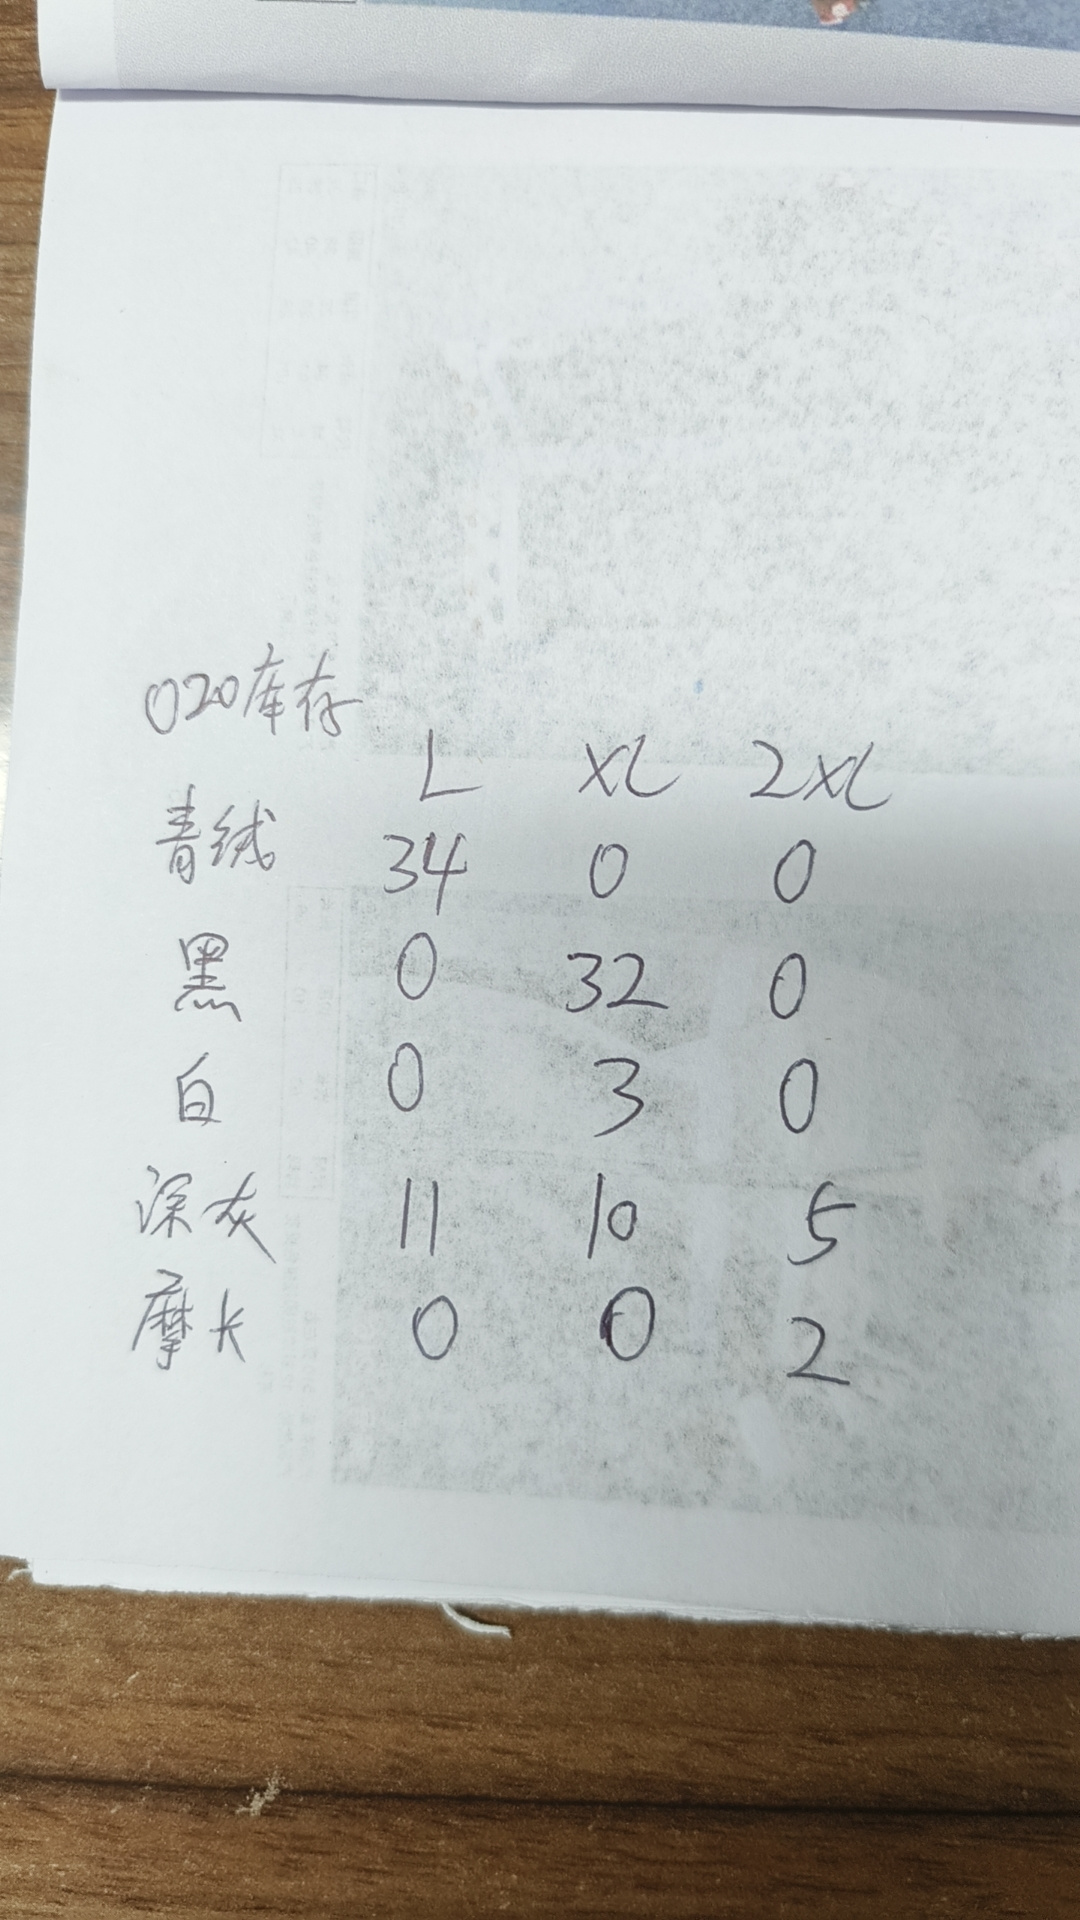 020库存
L XL 2XL
青绒 34 0 0
黑 0 32 0
白 0 3 0
深灰 11 10 5
摩卡 0 0 2